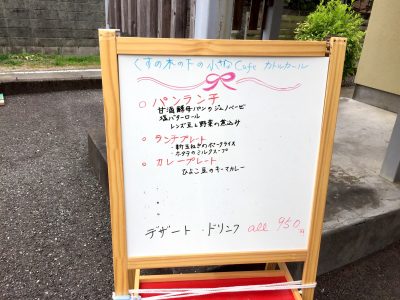 くすの木の下の小さなCafe カトルカール
○ パンランチ
甘酒酵母パンのジェノベーゼ
塩バターロール
レンズ豆と野菜の煮込み
○ ランチプレート
・新玉ねぎのポークライス
・ホタテのミルクスープ
○ カレープレート
ひよこ豆のキーマカレー
デザート ・ドリンク all 950円